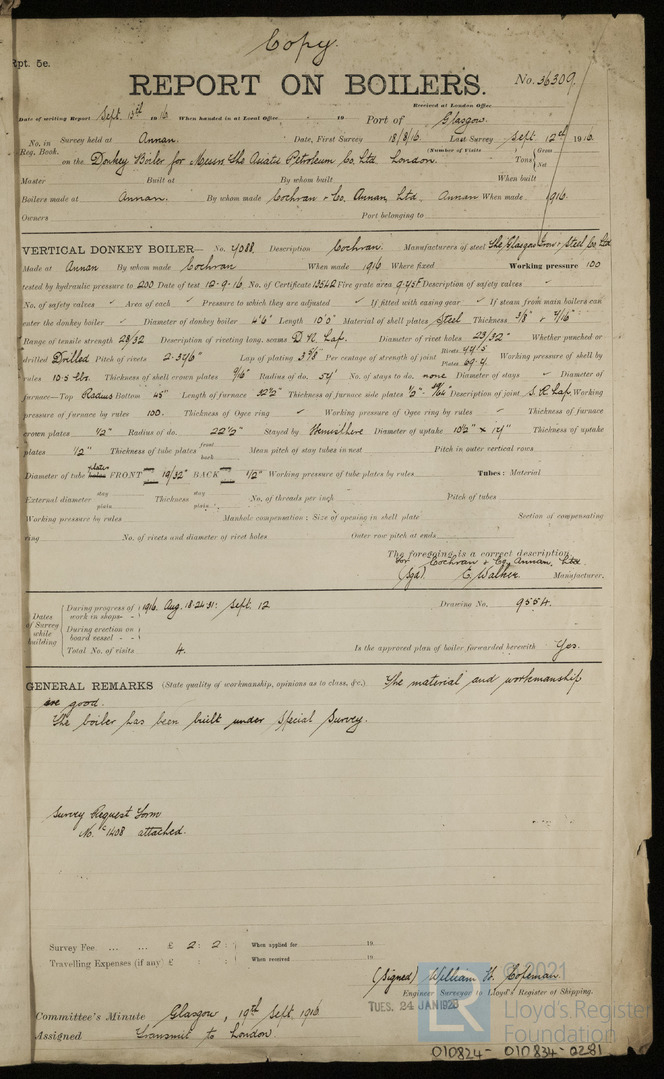 Copy.
Rpt. 5e.
REPORT ON BOILERS.
No. 36309.
Received at London Office
Date of writing Report Sept. 13th 1916 When handed in at Local Office 19 Port of Glasgow.
No. in Reg. Book. Survey held at Annan. Date, First Survey 18/8/16. Last Survey Sept. 12th 1916.
(Number of Visits
on the Donkey Boiler for Messrs The Asiatic Petroleum Co. Ltd. London. Tons { Gross Net
Master Built at By whom built When built
Boilers made at Annan. By whom made Cochran & Co. Annan, Ltd, Annan When made 1916.
Owners Port belonging to
VERTICAL DONKEY BOILER— No. 4088. Description Cochran. Manufacturers of steel The Glasgow Iron & Steel Co Ltd
Made at Annan By whom made Cochran When made 1916 Where fixed Working pressure 100
tested by hydraulic pressure to 200 Date of test 12-9-16 No. of Certificate 13542 Fire grate area Description of safety valves ✓
No. of safety valves ✓ Area of each ✓ Pressure to which they are adjusted ✓ If fitted with easing gear ✓ If steam from main boilers can
enter the donkey boiler ✓ Diameter of donkey boiler 4'6" Length 10'0" Material of shell plates Steel Thickness 3/8" & 7/16"
Range of tensile strength 28/32 Description of riveting long. seams D R Lap. Diameter of rivet holes 23/32" Whether punched or
drilled Drilled Pitch of rivets Lap of plating Per centage of strength of joint Rivets Plates 69.4. Working pressure of shell by
rules 105 lbs. Thickness of shell crown plates 9/16" Radius of do. 54" No. of stays to do. none Diameter of stays ✓ Diameter of
furnace—Top Radius Bottom 45" Length of furnace Thickness of furnace side plates Description of joint S R Lap. Working
pressure of furnace by rules 100. Thickness of Ogee ring ✓ Working pressure of Ogee ring by rules ✓ Thickness of furnace
crown plates 1/2" Radius of do. 22 1/2" Stayed by Hemisphere Diameter of uptake 10 1/2" × 14" Thickness of uptake
plates 1/2" Thickness of tube plates front back Mean pitch of stay tubes in nest Pitch in outer vertical rows
Diameter of tube plates holes FRONT 19/32" BACK 1/2" Working pressure of tube plates by rules Tubes: Material
External diameter stay plain Thickness stay plain No. of threads per inch Pitch of tubes
Working pressure by rules Manhole compensation: Size of opening in shell plate Section of compensating
ring No. of rivets and diameter of rivet holes Outer row pitch at ends
The foregoing is a correct description,
for Cochran & Co. Annan, Ltd
(Sgd). E. Walker. Manufacturer.
Dates of Survey while building
During progress of work in shops - - 1916. Aug. 18. 24. 31: Sept. 12 Drawing No. 9554.
During erection on board vessel - -
Total No. of visits 4. Is the approved plan of boiler forwarded herewith Yes.
GENERAL REMARKS (State quality of workmanship, opinions as to class, &c.) The material and workmanship
are good.
The boiler has been built under Special Survey.
Survey Request Form
No. 1408 attached.
Survey Fee ... ... £ 2 : 2 : When applied for 19
Travelling Expenses (if any) £ : : When received 19
(Signed) William H. Coleman
Engineer Surveyor to Lloyd's Register of Shipping.
TUES. 24 JAN 1928
Committee's Minute Glasgow, 19th Sept. 1916
Assigned Transmit to London
© 2021
LR
Lloyd's Register
Foundation
010824- 010834-0281